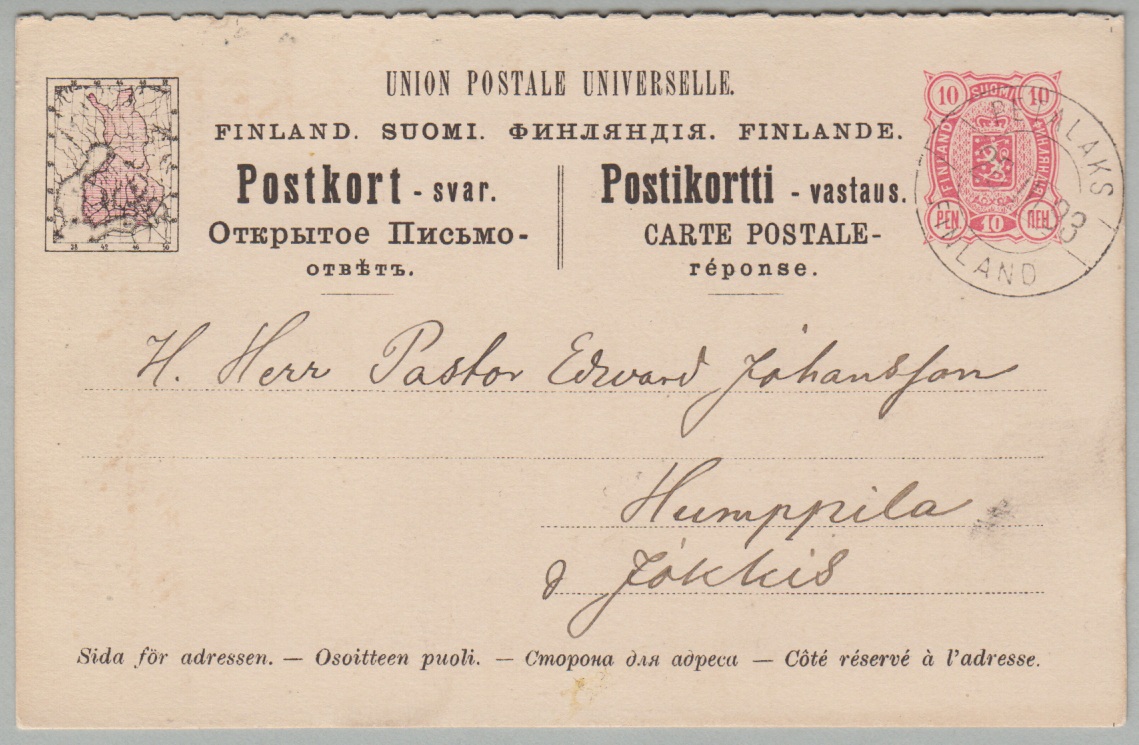 UNION POSTALE UNIVERSELLE.
FINLAND. SUOMI. ФИНЛЯНДІЯ. FINLANDE.
Postkort - svar.
Открытое Письмо-
отвѣтъ.
Postikortti - vastaus.
CARTE POSTALE-
réponse.
10 SUOMI 10
FINLAND
ФИНЛЯНДІЯ
PEN 10 ПЕН
LAKS
93
FINLAND
H. Herr Pastor Edvard Johansson
Humppila
Jokkis
Sida för adressen. — Osoitteen puoli. — Сторона для адреса — Côté réservé à l'adresse.